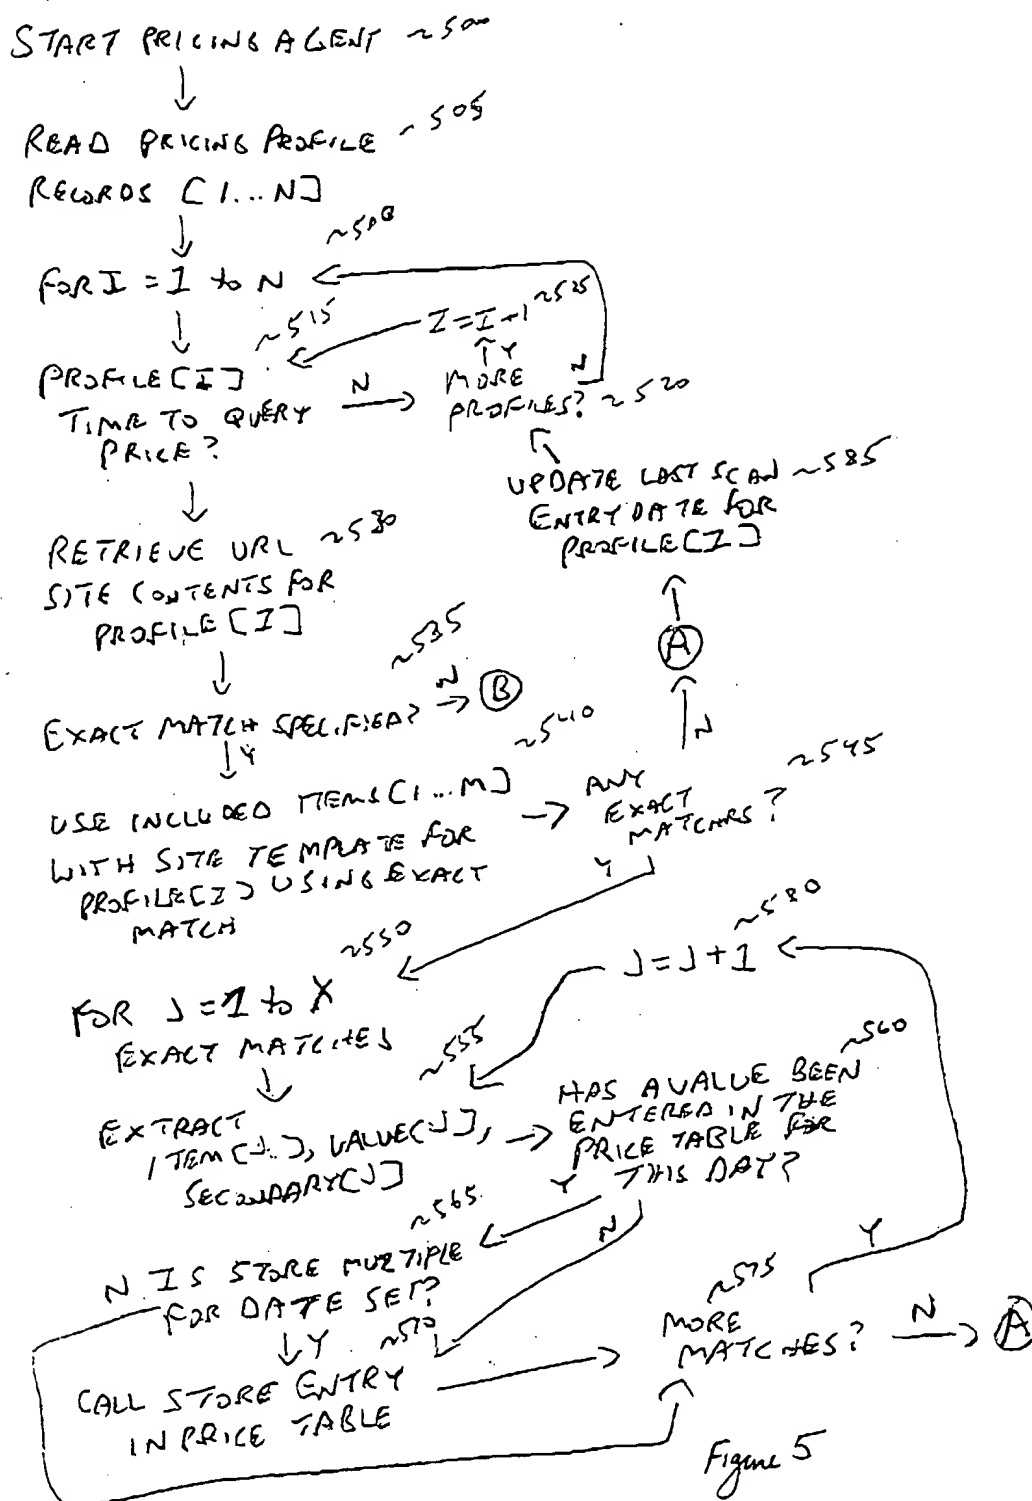 START PRICING AGENT ~500
READ PRICING PROFILE ~505
RECORDS [1...N]
~508
FOR I = 1 to N
~515
I = I+1 ~525
PROFILE[I]
TIME TO QUERY
PRICE?
N
Y
MORE
PROFILES? ~520
N
UPDATE LAST SCAN ~585
ENTRY DATE FOR
PROFILE[I]
RETRIEVE URL ~530
SITE CONTENTS FOR
PROFILE[I]
A
N
~535
EXACT MATCH SPECIFIED?
N
B
Y
~540
USE INCLUDED ITEMS[1...M]
WITH SITE TEMPLATE FOR
PROFILE[I] USING EXACT
MATCH
~545
ANY
EXACT
MATCHES?
Y
~550
FOR J = 1 to X
EXACT MATCHES
~580
J = J+1
~555
EXTRACT
ITEM[J], VALUE[J],
SECONDARY[J]
~560
HAS A VALUE BEEN
ENTERED IN THE
PRICE TABLE FOR
THIS DAY?
Y
N
~565
N IS STORE MULTIPLE
FOR DATE SET?
Y
~570
CALL STORE ENTRY
IN PRICE TABLE
~575
MORE
MATCHES?
Y
N
A
Figure 5